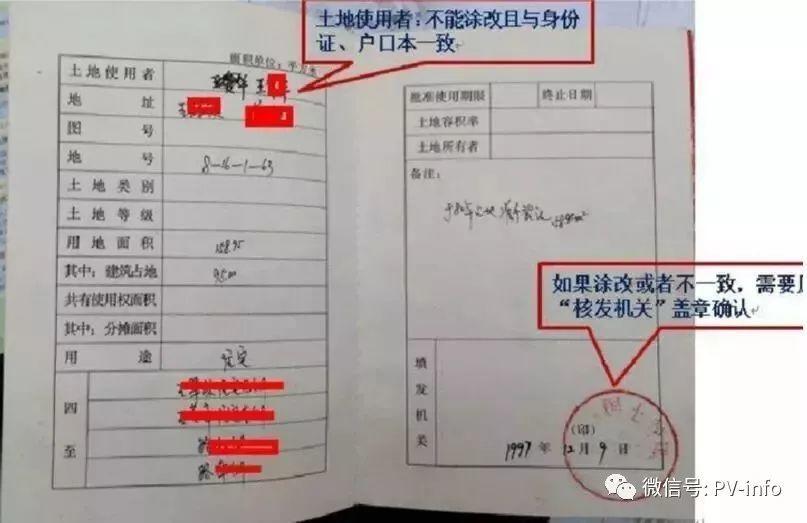 土地使用者：不能涂改且与身份
证、户口本一致
面积单位：平方米
土地使用者
地 址
图 号
地 号 8-16-1-63
土地类别
土地等级
用地面积 158.95
其中：建筑占地
共有使用权面积
其中：分摊面积
用 途 住宅
四
至
批准使用期限 终止日期
土地容积率
土地所有者
备注：
如果涂改或者不一致，需要
“核发机关”盖章确认
填发机关
(印)
1997 年 12 月 9 日
微信号: PV-info